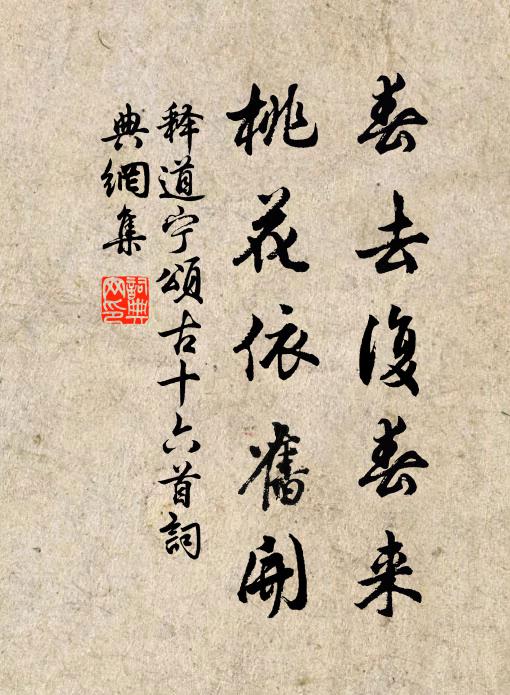 春去復春来
桃花依舊開
释道宁頌古十六首詞
典網集
詞典
网印